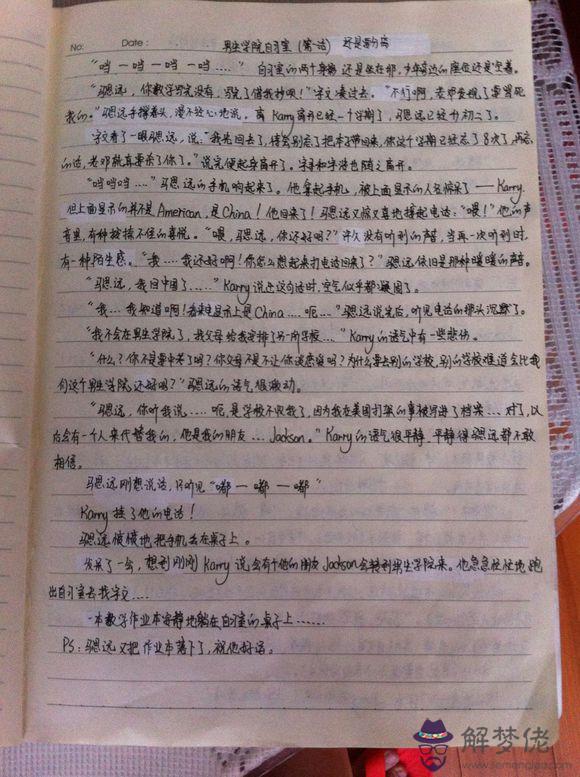 No: Date: 男生学院自习室 (第一话) 还是要分离
"当一当一当一当...." 自习室的两个身影还是坐在那,少年旁边的座位还是空着。
"马思远,你数学写完没有,写完了借我抄呗!"字文凑过去。"不行啊,老邓要炮了要骂死
我的。"马思远手撑着头,漫不经心地说。离Karry离开已经一个学期了,马思远已经升初二了。
字文看了一眼马思远,说:"我先回去了,待会别忘了把本子带回来,你这个学期已经忘了8次了,再忘
的话,老邓就真要杀了你了。"说完便起身离开了。字寻和字浩也随之离开。
"当当当...."马思远的手机响起来了。他拿起手机,被上面显示的人名惊呆了——Karry.
但上面显示的并不是American,是China!他回来了!马思远又惊又喜地接起电话:"喂!"他的声
音里,有种按捺不住的喜悦。"喂,马思远,你还好吗?"许久没有听到的声音,当再一次听到时,
有一种陌生感。"我....我还好啊!你怎么想起来打电话回来了?"马思远依旧是那种暖暖的声音。
"马思远,我回中国了......"Karry说这句话时,空气似乎都凝固了。
"我...我知道啊!看来电显示上是China....呃...."马思远说完后,听见电话的那头沉默了。
"我不会在男生学院了,我父母给我安排了另一所学校...."Karry的语气中有一些悲伤。
"什么?你不是要中考了吗?你父母不是不让你谈恋爱吗?为什么要去别的学校,别的学校难道会比我
们这个男生学院还好吗?"马思远的语气很激动。
"马思远,你听我说....呃,是学校不收我了,因为我在美国打架的事被写进了档案...对了,以
后会有一个人来代替我的,他是我的朋友...Jackson。"Karry的语气很平静,平静得马思远都不敢
相信。
马思远刚想说话,只听见"嘟一嘟一嘟"
Karry挂了他的电话!
马思远慢慢地把手机丢在桌子上。
发呆了一会,想到刚刚Karry说会有个他的朋友Jackson会转到男生学院来。他急急忙忙地跑
出自习室去找字文....
一本数学作业本安静地躺在自习室的桌子上......
PS:马思远又把作业本落下了,祝他好运。
解梦佬
www.jiemenglao.com